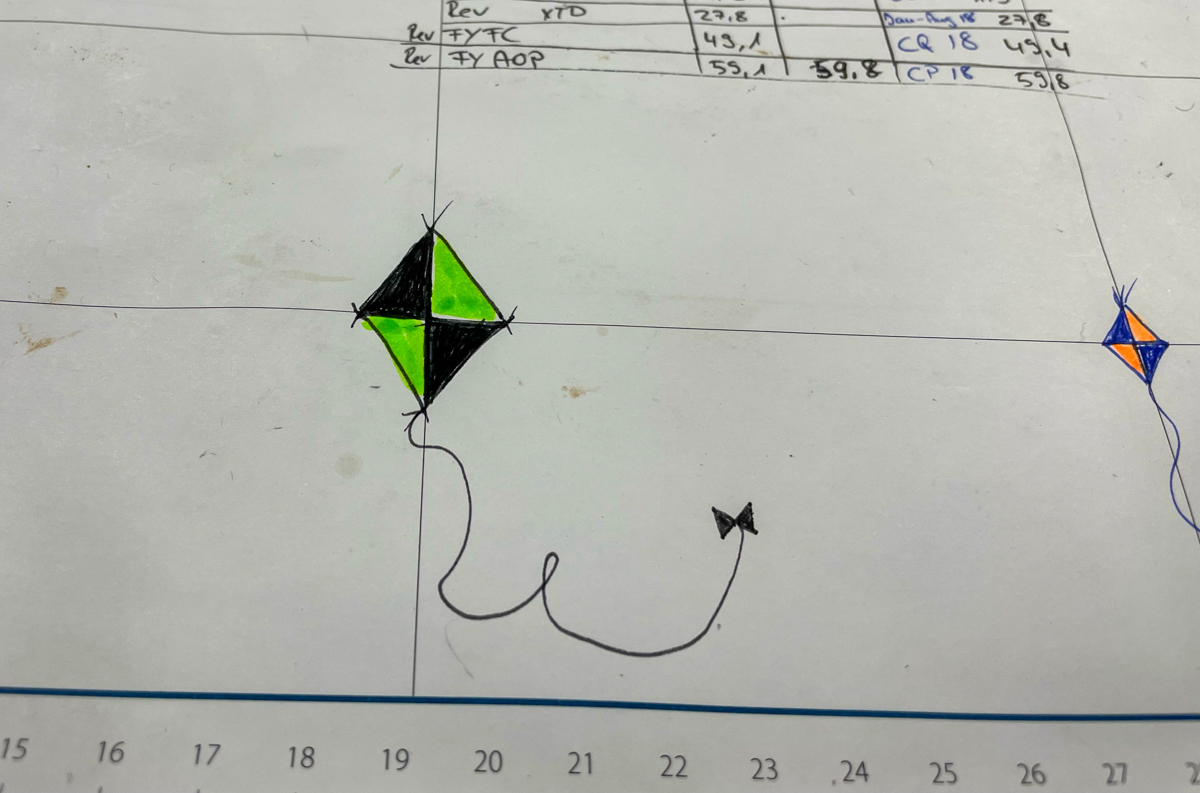 Rev XTD 27,8 Jan-Aug 18 27,8
Rev FYFC 49,1 CQ 18 49,4
Rev FY AOP 59,1 59,8 CP 18 59,8
15 16 17 18 19 20 21 22 23 24 25 26 27